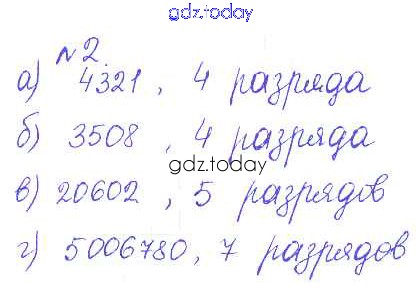 gdz.today
№2.
а) 4321, 4 разряда
б) 3508, 4 разряда
gdz.today
в) 20602, 5 разрядов
г) 5006780, 7 разрядов